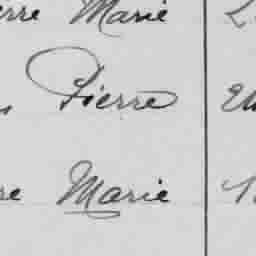 erre Marie
Pierre
re Marie